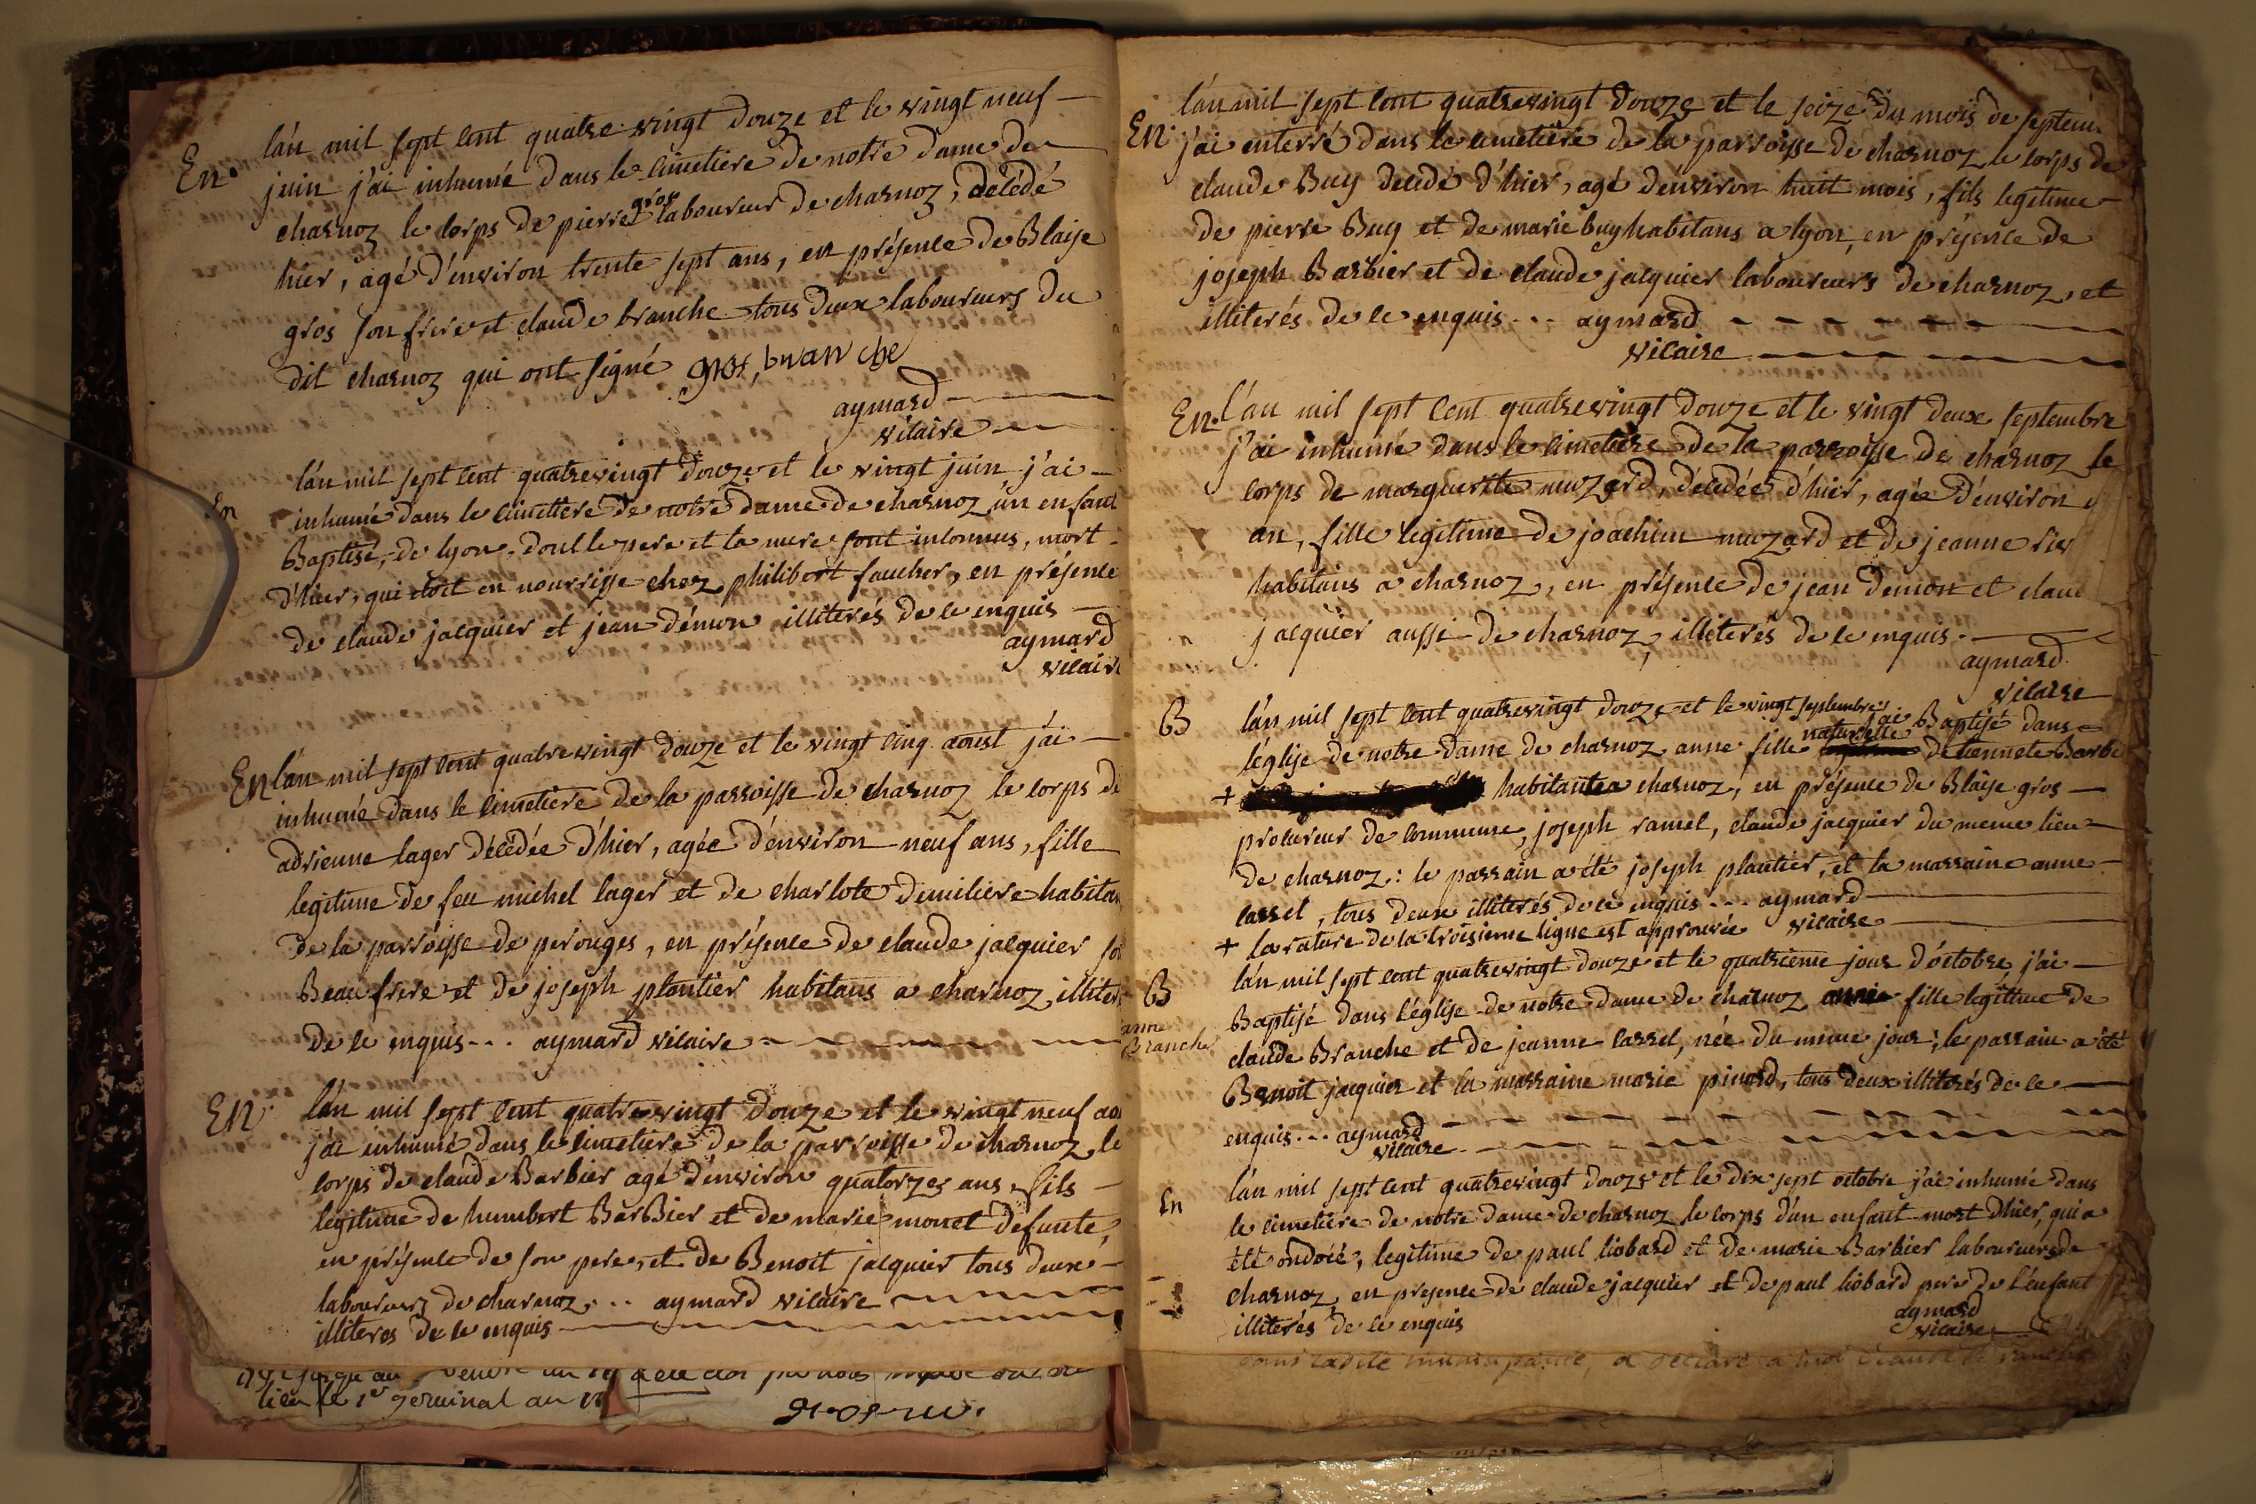 En.
l'an mil sept cent quatre vingt douze et le vingt neuf
juin j'ai inhumé dans le cimetiere de notre dame de
charnoz le corps de pierre gros laboureur de charnoz, décédé
hier, agé d'environ trente sept ans, en présence de Blaise
gros son frere et claude branche tous deux laboureurs du
dit charnoz qui ont signé gros, branche
aymard
vicaire
En
l'an mil sept cent quatrevingt douze et le vingt juin j'ai
inhumé dans le cimettere de notre dame de charnoz un enfant
Baptisé, de lyon, dont le pere et la mere sont inconnus, mort
d'hier, qui etoit en nourrisse chez philibert faucher, en présence
de claude jacquier et jean démon illiterés de ce enquis
aymard
vicaire
En l'an mil sept cent quatrevingt douze et le vingt cinq aoust j'ai
inhumé dans le cimetiere de la parroisse de charnoz le corps de
adrienne lager décédée d'hier, agée d'environ neuf ans, fille
legitime de feu michel lager et de charlote demiliere habitan
de la parroisse de perouges, en présence de claude jacquier so
Beaufrere et de joseph plantier habitans a charnoz illiter
de ce enquis... aymard vicaire
En.
l'an mil sept cent quatrevingt douze et le vingt neuf aou
j'ai inhumé dans le cimetiere de la parroisse de charnoz le
corps de claude Barbier agé d'environ quatorze ans, fils
legitime de humbert BarBier et de marie monet défunte,
en présence de son pere, et de Benoit jacquier tous deux
laboureurs de charnoz... aymard vicaire
illiteres de ce enquis
lieu le 1er germinal an
En.
l'an mil sept cent quatrevingt douze et le seize du mois de septem
j'ai enterré dans le cimetière de la parroisse de charnoz le corps de
claude Buy decedé d'hier, agé d'environ huit mois, fils legitime
de pierre Buy et de marie buy habitans a lyon, en présence de
joseph Barbier et de claude jacquier laboureurs de charnoz, et
illiterés de ce enquis... aymard
vicaire
En. l'an mil sept cent quatrevingt douze et le vingt deux septembre
j'ai inhumé dans le cimetiere de la parroisse de charnoz le
corps de marguerite muzard, décédée d'hier, agée d'environ
an, fille legitime de joachim muzard et de jeanne
habitans a charnoz, en présence de jean demon et claud
jacquier aussi de charnoz, illiterés de ce enquis.
aymard
vicaire
B
l'an mil sept cent quatrevingt douze et le vingt septembre j'ai Baptisé dans
l'église de notre dame de charnoz anne fille naturelle de Barbi
+ habitante a charnoz, en présence de Blaise gros
procureur de commune, joseph ramel, claude jacquier du meme lieu
de charnoz: le parrain a été joseph plantier, et la marraine anne
cassel, tous deux illiterés de ce enquis... aymard
+ la rature de la troisieme ligne est approuvée vicaire
B
anne
Branche
l'an mil sept cent quatrevingt douze et le quatrieme jour d'octobre j'ai
Baptisé dans l'église de notre dame de charnoz annie fille legitime de
claude Branche et de jeanne cassel, née du meme jour; le parrain a été
Benoit jacquier et la marraine marie pinard, tous deux illiterés de ce
enquis... aymard
vicaire
En
l'an mil sept cent quatrevingt douze et le dix sept octobre j'ai inhumé dans
le cimetiere de notre dame de charnoz le corps d'un enfant mort d'hier, qui a
été ondoié, legitime de paul liobard et de marie Barbier laboureurs de
charnoz, en présence de claude jacquier et de paul liobard pere de l'enfant
illiterés de ce enquis
aymard
vicaire